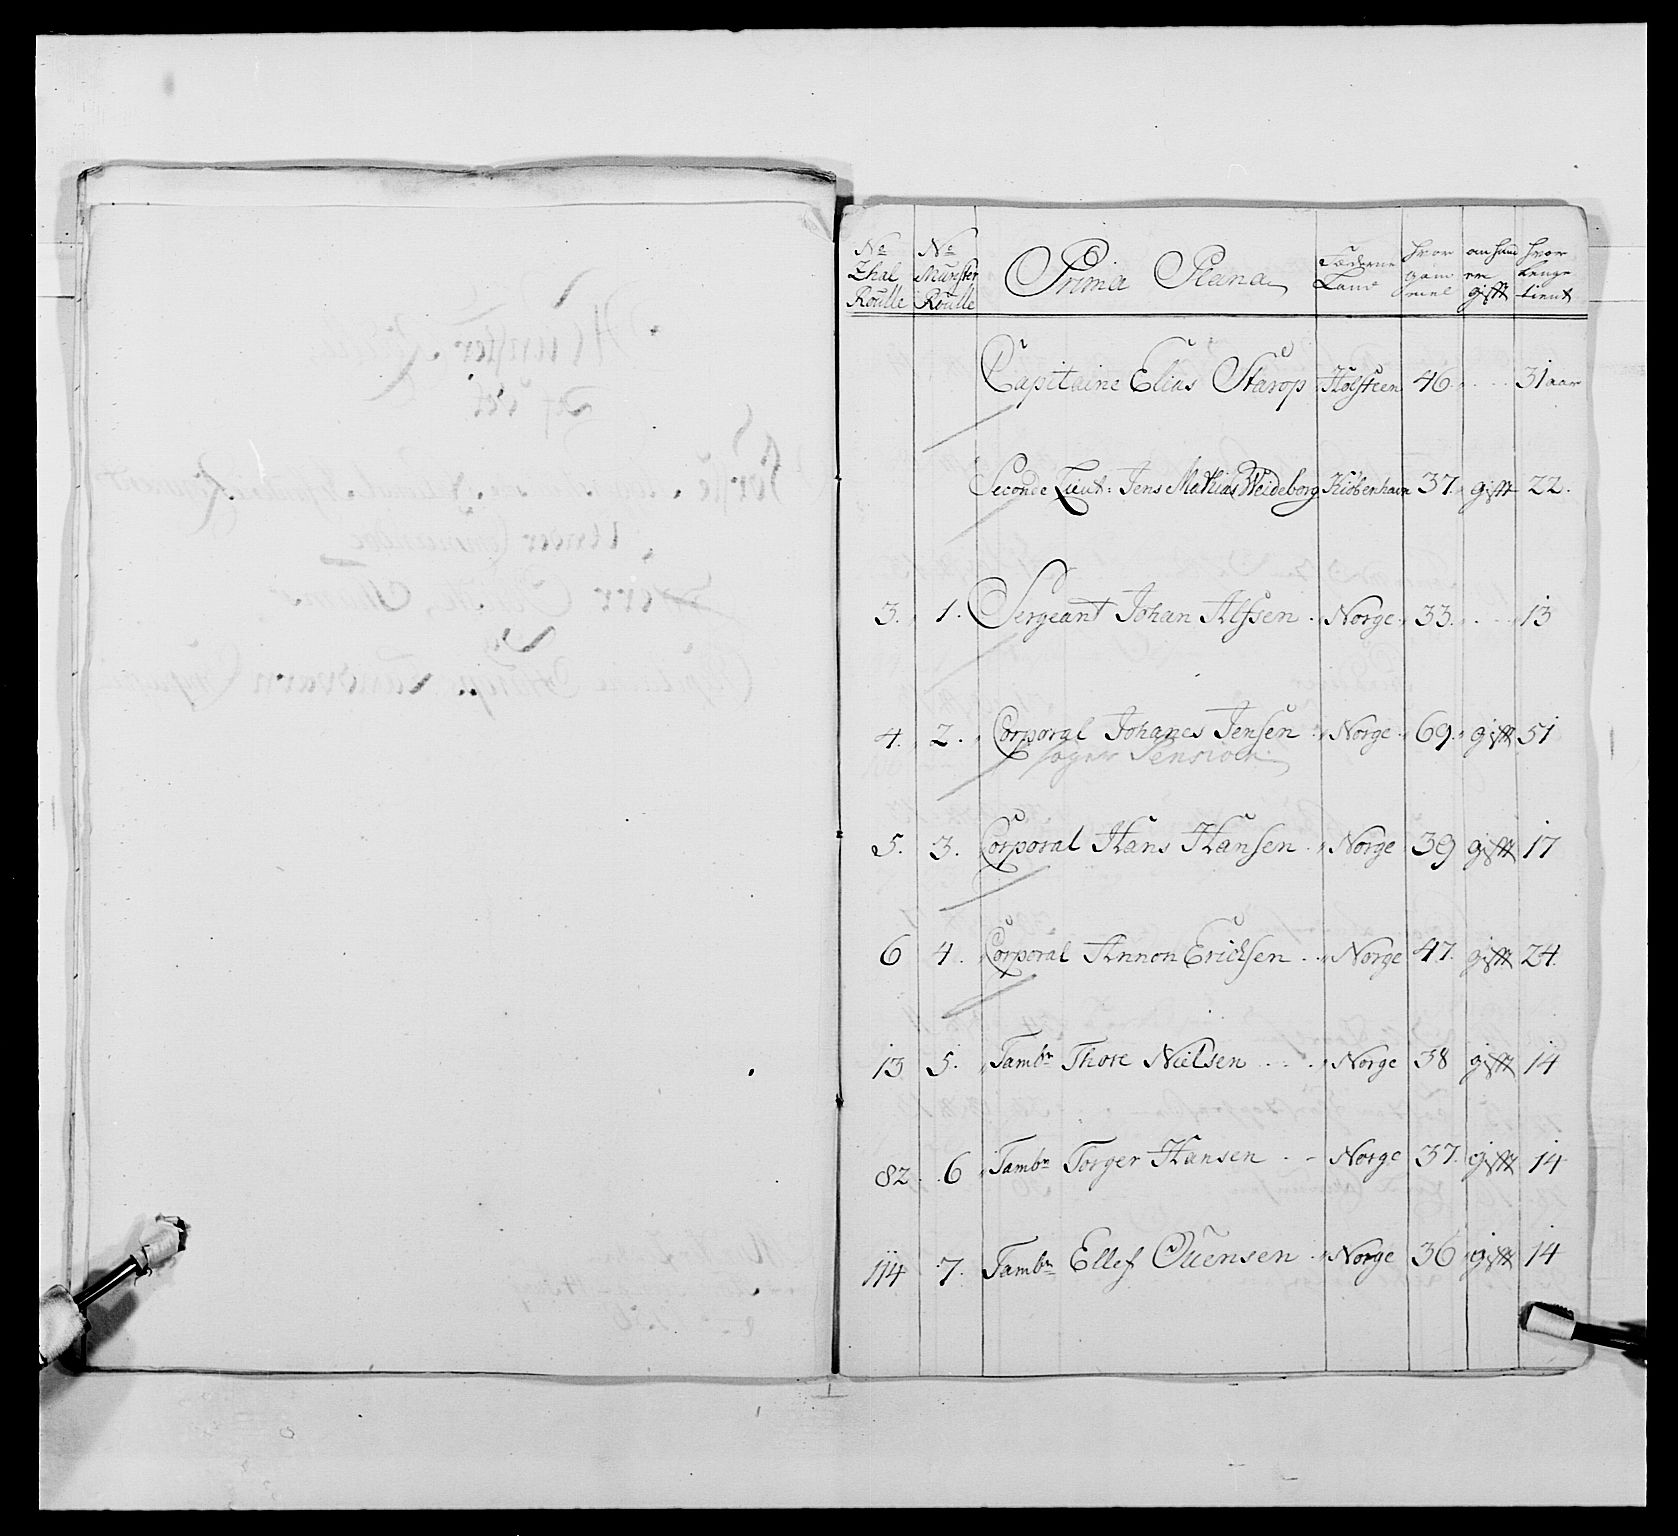 No Zhal Roulle | No Munster Roulle | Prima Plana | Fæderne Land | hvor gam mel | om hand er gifft | hvor lenge tient
Capitaine Elias Starop | Holsteen | 46. | | 31 aar
Seconde Lieut: Jens Mathias Weideborg | Kiøbenhavn | 37. | gifft | 22.
3. | 1. | Sergeant Johan Alfsen | Norge | 33. | | 13
4. | 2. | Corporal Johanes Jensen | Norge | 69. | gifft | 51
søger Pension
5. | 3. | Corporal Hans Hansen | Norge | 39 | gifft | 17
6 | 4. | Corporal Annon Ericksen | Norge | 47. | gifft | 24.
13 | 5. | Tambr Thore Nielsen | Norge | 38 | gifft | 14
82 | 6 | Tambr Torger Hansen | Norge | 37. | gifft | 14
114 | 7. | Tambr Ellef Ouensen | Norge | 36 | gifft | 14